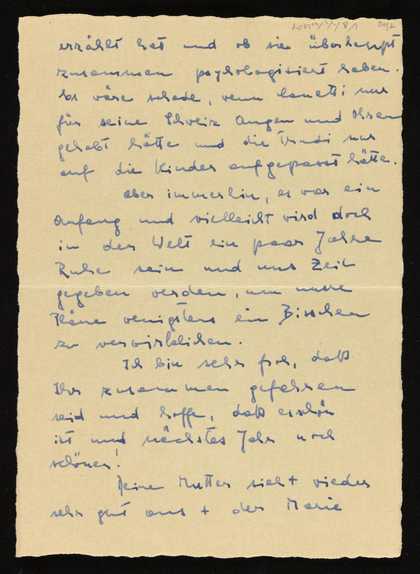 erzählt hat und ob sie überhaupt
zusammen psychologisiert haben.
Es wäre schade, wenn Canetti nur
für seine Schweiz Augen und Ohren
gehabt hätte und die Trudi nur
auf die Kinder aufgepasst hätte.
Aber immerhin, es war ein
Anfang und vielleicht wird doch
in der Welt ein paar Jahre
Ruhe sein und uns Zeit
gegeben werden, um unsre
Pläne wenigstens ein Bisschen
zu verwirklichen.
Ich bin sehr froh, daß
Ihr zusammen gefahren
seid und hoffe, daß es schön
ist und nächstes Jahr noch
schöner!
Deine Mutter sieht wieder
sehr gut aus + der Marie